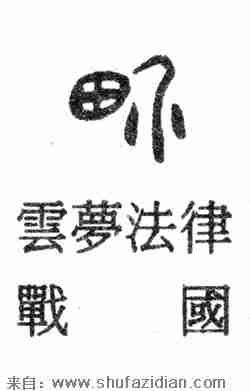 畍
雲夢法律
戰國
来自：www.shufazidian.com